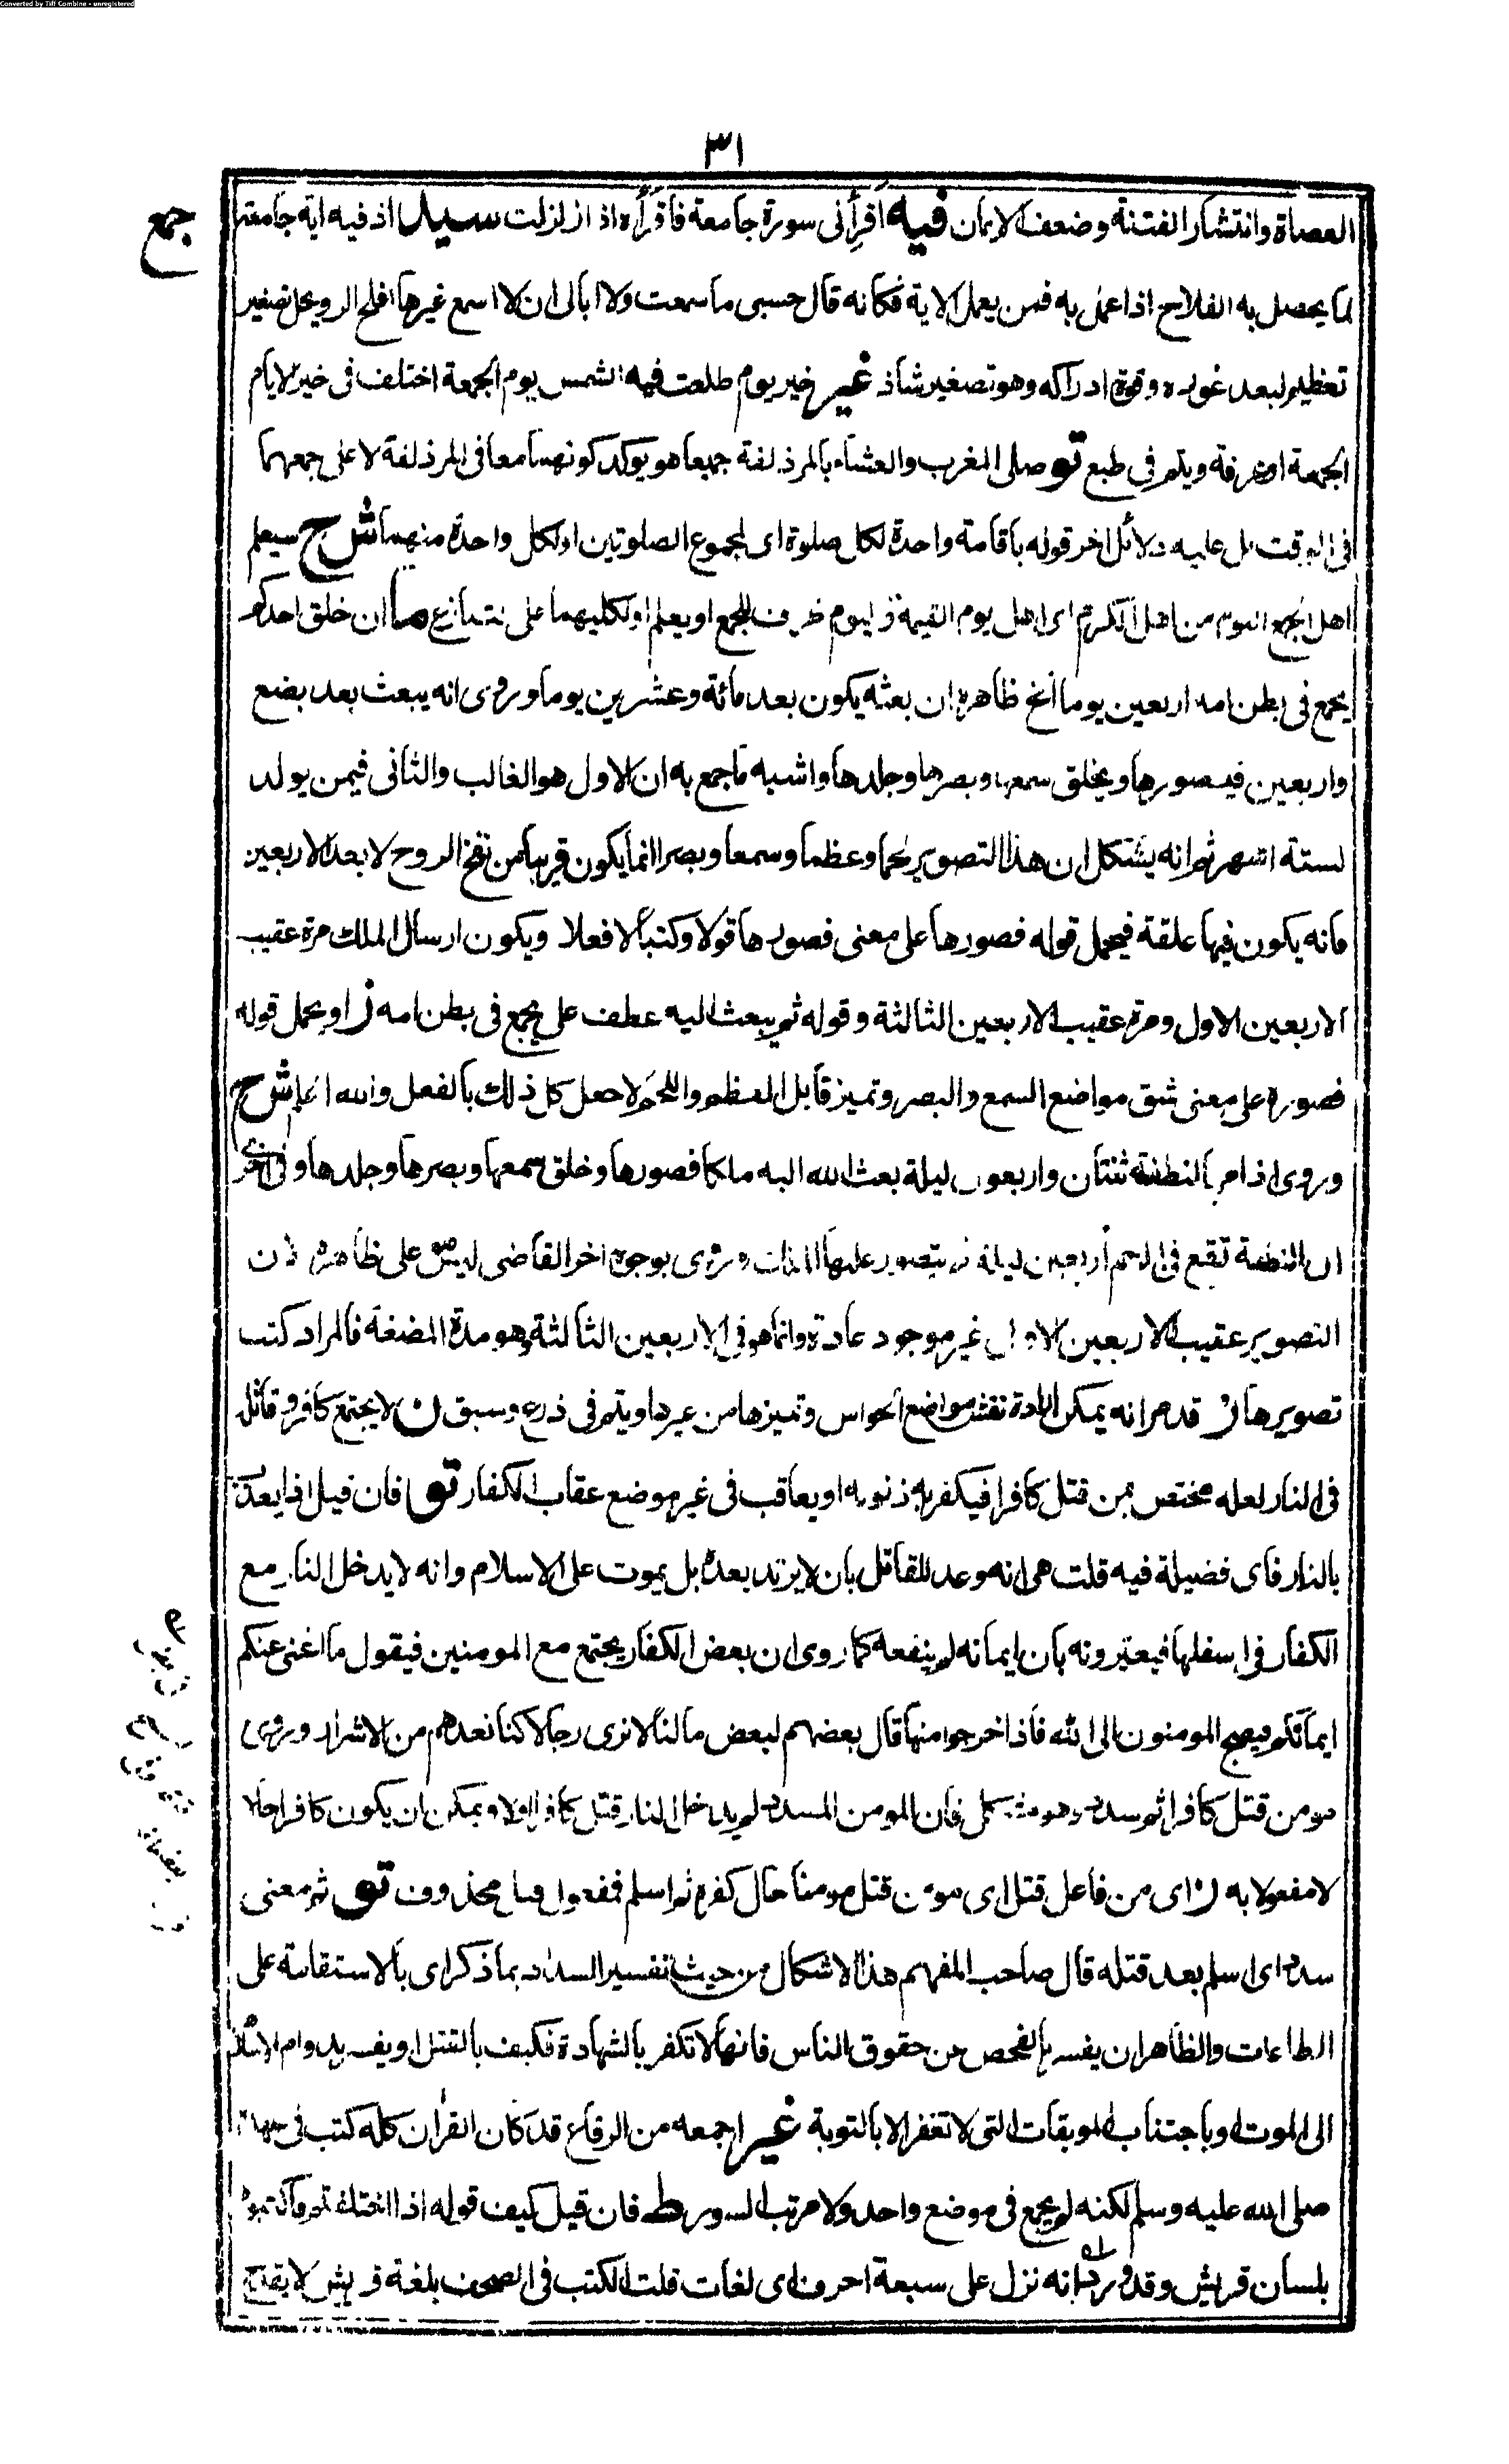 Converted by Tiff Combine - unregistered
٣١
جمع
العصاة وانتشار الفتنة وضعف الايمان فيه اقرأنى سورة جامعة فاقرأه اذا زلزلت سيد اذ فيه اية جامعة
لما يحصل به الفلاح اذا عمل به فمن يعمل الاية فكانه قال حسبى ما سمعت ولا ابالى ان لا اسمع غيرها افلح الرويجل تصغير
تعظيم لبعد غوره وقوة ادراكه وهو تصغير شاذ غير خير يوم طلعت فيه الشمس يوم الجمعة اختلف فى خير الايام
الجمعة او عرفة ويتم فى طبع تو صلى المغرب والعشاء بالمزدلفة جميعا هو يوكد كونهما معا فى المزدلفة لا على جمعهما
فى الوقت بل عليه دلائل اخر قوله باقامة واحدة لكل صلوة اى لمجموع الصلوتين او لكل واحدة منهما ش ح سيعلم
اهل الجمع اليوم من اهل الكرم اى اهل يوم القيمة فاليوم ظرف للجمع او يعلم او لكليهما على تنازع ما ان خلق احدكم
يجمع فى بطن امه اربعين يوما الخ ظاهره ان بعثه يكون بعد مائة وعشرين يوما وروى انه يبعث بعد بضع
واربعين فيصورها ويخلق سمعها وبصرها وجلدها واشبه ما جمع به ان الاول هو الغالب والثانى فيمن يولد
لستة اشهر ثم انه يشكل ان هذا التصوير لحما وعظما وسمعا وبصرا انما يكون قريبا من نفخ الروح لا بعد الاربعين
فانه يكون فيها علقة فيحمل قوله فصورها على معنى فصورها قولا وكتبا لا فعلا ويكون ارسال الملك مرة عقيب
الاربعين الاول ومرة عقيب الاربعين الثالثة وقوله ثم يبعث اليه عطف على يجمع فى بطن امه ز او يحمل قوله
فصوره على معنى شق مواضع السمع والبصر وتميز قابل العظم واللحم لا جعل كل ذلك بالفعل والله اعلم ش ح
وروى اذا مر بالنطفة ثنتان واربعون ليلة بعث الله اليه ملكا فصورها وخلق سمعها وبصرها وجلدها وفى اخرى
ان النطفة تقع فى الرحم اربعين ليلة ثم يتصور عليها الملك وروى بوجوه اخر القاضى ليس هو على ظاهره لان
التصوير عقيب الاربعين الاول غير موجود عادة وانما هو فى الاربعين الثالثة وهو مدة المضغة فالمراد كتب
تصويرها ز قد مر انه يمكن ارادة نقش مواضع الحواس وتميزها من غيرها ويتم فى ذرع وسبق ن لا يجتمع كافر وقاتله
فى النار لعله مختص بمن قتل كافرا فيكفر به ذنوبه او يعاقب فى غير موضع عقاب الكفار تو فان قيل اذا يعذب
بالنار فاى فضيلة فيه قلت هى انه وعد للقاتل بان لا يرتد بعده بل يموت على الاسلام وانه لا يدخل النار مع
الكفار فى اسفلها فيعيرونه بان ايمانه لم ينفعه كما روى ان بعض الكفار يجتمع مع المومنين فيقول ما اغنى عنكم
ايمانكم فيضج المومنون الى الله فاذا خرجوا منها قال بعضهم لبعض ما لنا لا نرى رجالا كنا نعدهم من الاشرار وروى
مومن قتل كافرا ثم سدد وهو مشكل فان المومن المسدد لم يدخل النار قتل كافرا اولا ويمكن ان يكون كافرا حالا
لا مفعولا به ن اى من فاعل قتل اى مومن قتل مومنا حال كفره ثم اسلم فمفعول محذوف تو ثم معنى
سدد اى اسلم بعد قتله قال صاحب المفهم هذا الاشكال من حيث تفسير السداد بما ذكر اى بالاستقامة على
الطاعات والظاهر ان يفسر بالفحص من حقوق الناس فانها لا تكفر بالشهادة فكيف بالقتل او يفسر بدوام الاسلام
الى الموت او باجتناب الموبقات التى لا تغفر الا بالتوبة غير اجمعه من الرقاع قد كان القران كله كتب فى عهده
صلى الله عليه وسلم لكنه لم يجمع فى موضع واحد ولا مرتب السور ط فان قيل كيف قوله اذا اختلفتم فاكتبوه
بلسان قريش وقد ورد انه نزل على سبعة احرف اى لغات قلت الكتب فى الصحف بلغة قريش لا يقدح